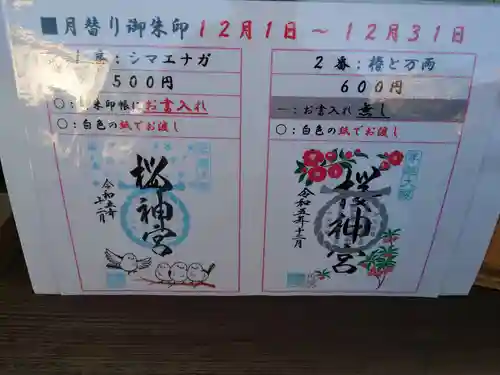 ■月替り御朱印 12月1日 ～ 12月31日
1番：シマエナガ
500円
○：御朱印帳にお書入れ
○：白色の紙でお渡し
桜神宮
令和五年
十二月
2番：椿と万両
600円
―：お書入れ無し
○：白色の紙でお渡し
桜神宮
令和五年十二月